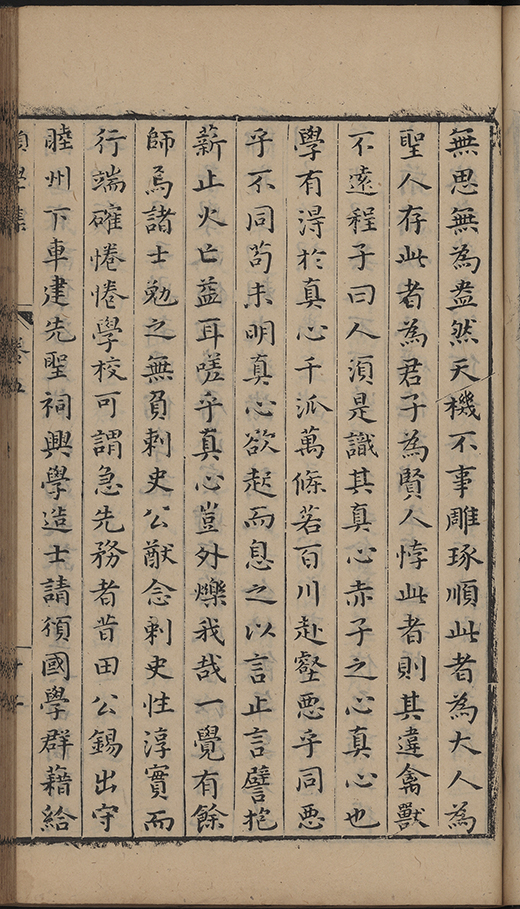 無思無為盎然天機不事雕琢順此者為大人為
聖人存此者為君子為賢人悖此者則其違禽獸
不遠程子曰人須是識其真心赤子之心真心也
學有得於真心千派萬條若百川赴壑惡乎同惡
乎不同苟未明真心欲起而息之以言止言譬抱
薪止火亡益耳嗟乎真心豈外爍我哉一覺有餘
師焉諸士勉之無負刺史公猷念刺史性淳實而
行端確惓惓學校可謂急先務者昔田公錫出守
睦州下車建先聖祠興學造士請頒國學群藉給
學集
卷五